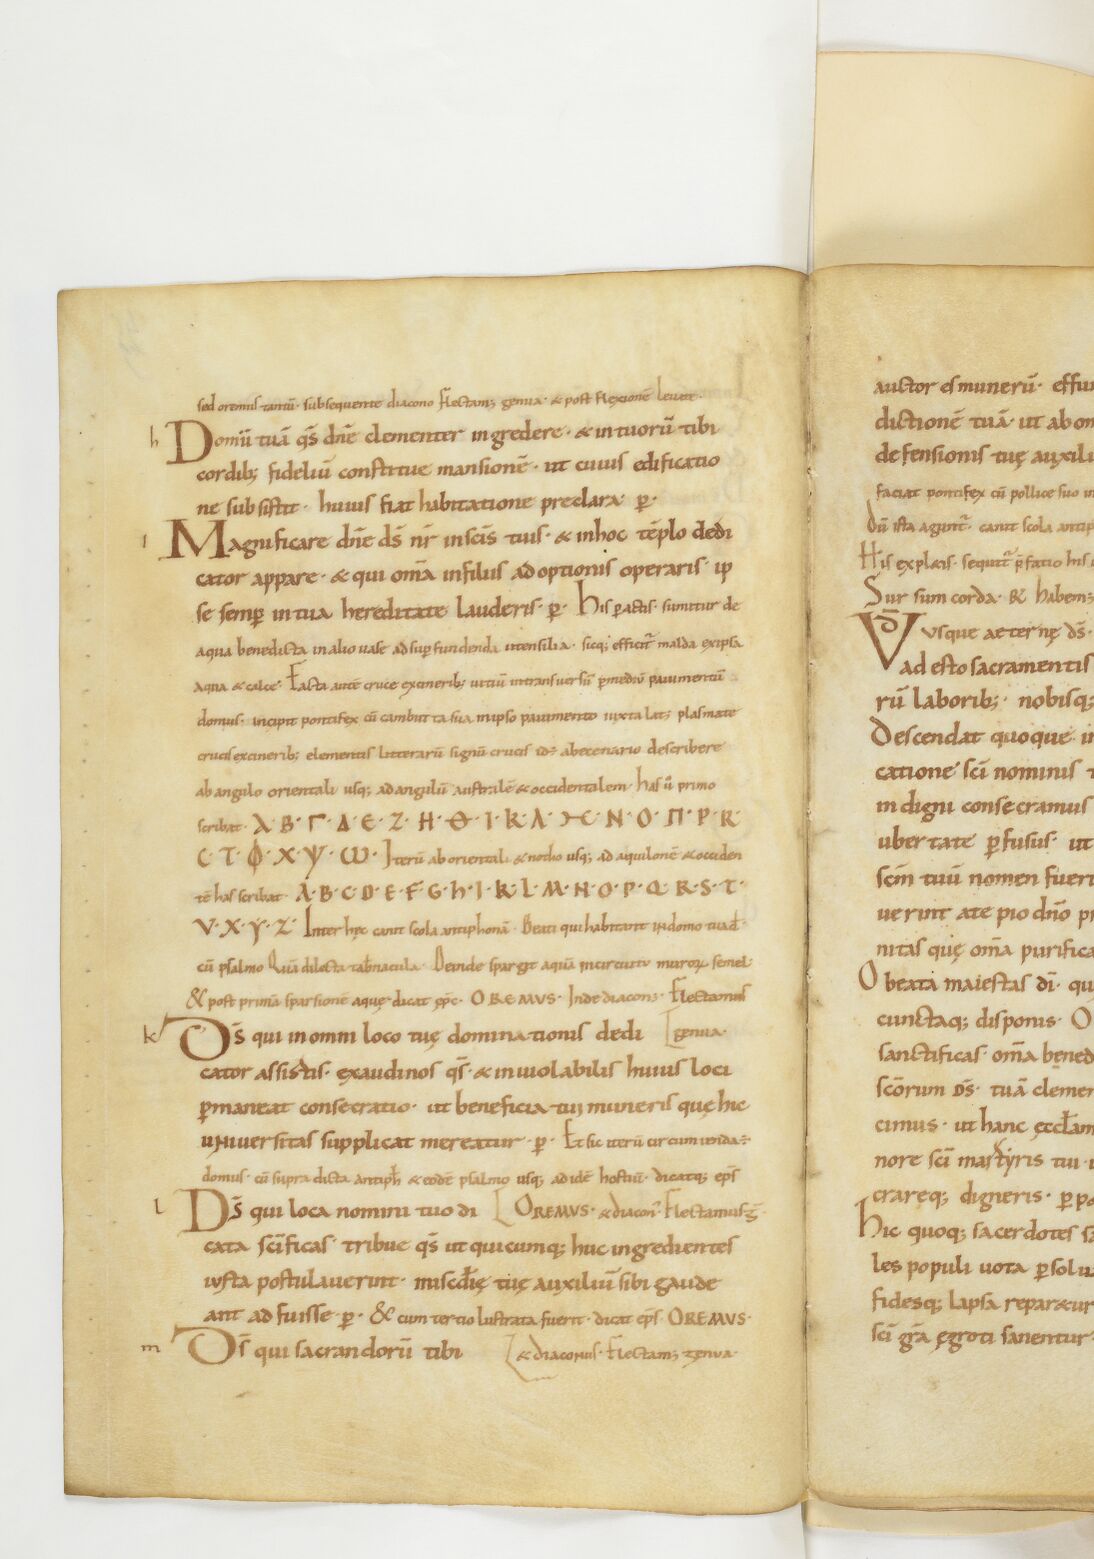 sed oremus tantū· subsequente diacono Flectam; genua· & post flexionē leuate·
h Domū tuā q̄s dn̄e clementer ingredere· & intuorū tibi
cordib; fideliū constitue mansionē· ut cuius edificatio
ne subsistit· huius fiat habitatione preclara· p̄·
I Magnificare dn̄e ds̄ nr̄ inscīs tuis· & inhoc tēplo dedi
cator appare· & qui om̄a infiliis adoptionis operaris· ip
se semp̄ intua hereditate lauderis· p̄· his pactis· sumitur de
aqua benedicta inalio uase adsup fundenda utensilia· sicq; efficit̄ malda exipsa
aqua & calce· Facta autē cruce excinerib; uitiū intransuersū pmediū pauimentū
domus· incipit pontifex cū cambutta sua inipso pauimento iuxta lat; plasmate
crucis excinerib; elementis litterarū signū crucis id÷ abecenario describere
abangulo orientali usq; adangulū australē & occidentalem· has ū primo
scribat· Λ· B· Γ· Δ· Є· Z· H· Θ· I· K· Λ· Ͻ-Є· N· O· Π· P· R·
C· T· ϕ· X· Ψ· Ѡ· Iterū aborientali & notho usq; ad aquilonē & occiden
tē has scribat· A· B· C· D· E· F· G· h· I· K· L· M· N· O· P· Q· R· S· T·
V· X· Y· Z· Inter hęc canit scola antiphonā· Beati qui habitant indomo tua dn̄e·
cū psalmo Quā dilecta tab̄nacula· Deinde spargit aquā incircuitu muroꝝ semel·
& post primā sparsionē aquę· dicat ep̄c· OREMVS· Inde diacon;· Flectamus
k Ds̄ qui inomni loco tuę dominationis dedi [genua·
cator assistis· exaudinos q̄s· & inuiolabilis huius loci
pmaneat consecratio· ut beneficia tui muneris quę hic
uniuersitas supplicat mereatur· p̄· Et sic iterū circumienda÷
domus· cū supra dicta antiph̄ & eodē psalmo usq; adidē hostiū· dicatq; ep̄s
l Ds̄ qui loca nomini tuo di [OREMVS· & diacon̄· Flectamus ḡ·
cata scīficas· tribue q̄s ut quicumq; huc ingredientes
iusta postulauerint· miscd̄ię tuę auxiliū sibi gaude
ant adfuisse· p̄· & cum tertio lustrata fuerit· dicat ep̄s· OREMVS·
m Ds̄ qui sacrandorū tibi [& diaconus· Flectam; genua·
auctor es munerū· effu
dictionē tuā· ut abom
defensionis tuę auxili
faciat pontifex cū pollice suo in
Dū ista agunt̄· canit scola antip
His expl&is· sequit̄ p̄fatio his
Sur sum corda· R̄ habem;
VD̄ Vsque aeternę ds̄·
adesto sacramentis
rū laborib;· nobisq;
Descendat quoque in
catione scī nominis t
indigni consecramus
ubertate pfusus· ut
scīm tuū nomen fueri
uerint ate pio dn̄o p
nitas quę om̄a purifica
O beata maiestas dī· qu
cunctaq; disponis· O
sanctificas· om̄a bened
scōrum Ds̄· tuā clemen
cimus· ut hanc ęccl̄am
nore scī martyris tui·
crareq; digneris· p p
hic quoq; sacerdotes sa
les populi uota psolu
fidesq; lapsa repar&ur
scī grā ęgroti sanentur